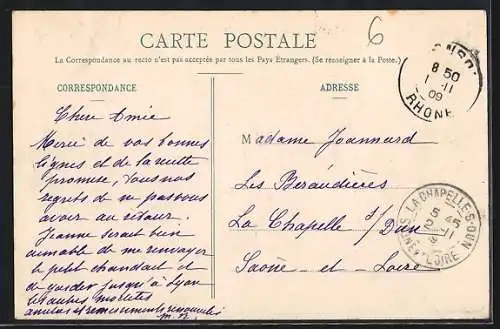 6
CARTE POSTALE
La Correspondance au recto n'est pas acceptée par tous les Pays Étrangers. (Se renseigner à la Poste.)
CORRESPONDANCE
ADRESSE
8 50
1 - 11
09
RHONE
Chère Amie
Merci de vos bonnes
lignes et de la
promise, vous nos
regrets de ne pas vous
avoir au
Jeanne serait bien
aimable de me renvoyer
le petit chandail et
de garder jusqu'à Lyon
les autres
et remerciements
Madame Joannard
Les Béraudières
La Chapelle s/ Dun
Saône - et - Loire
LA CHAPELLE-S-DUN
5 45
2 - 11
SAÔNE-ET-LOIRE